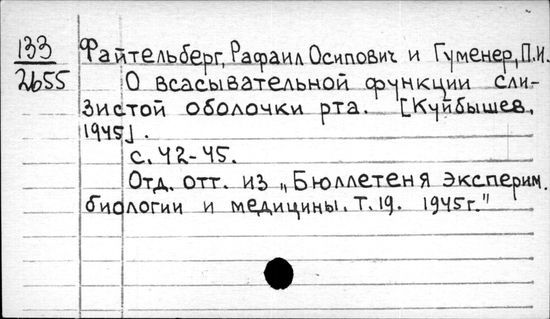 133 Файтельберг, Рафаил Осипович и Гуменер, П.И.
2655 О всасывательной функции сли-
зистой оболочки рта. [Куйбышев,
1945].
с. 42-45.
Отд. отт. из „Бюллетеня эксперим.
биологии и медицины. Т. 19. 1945г."